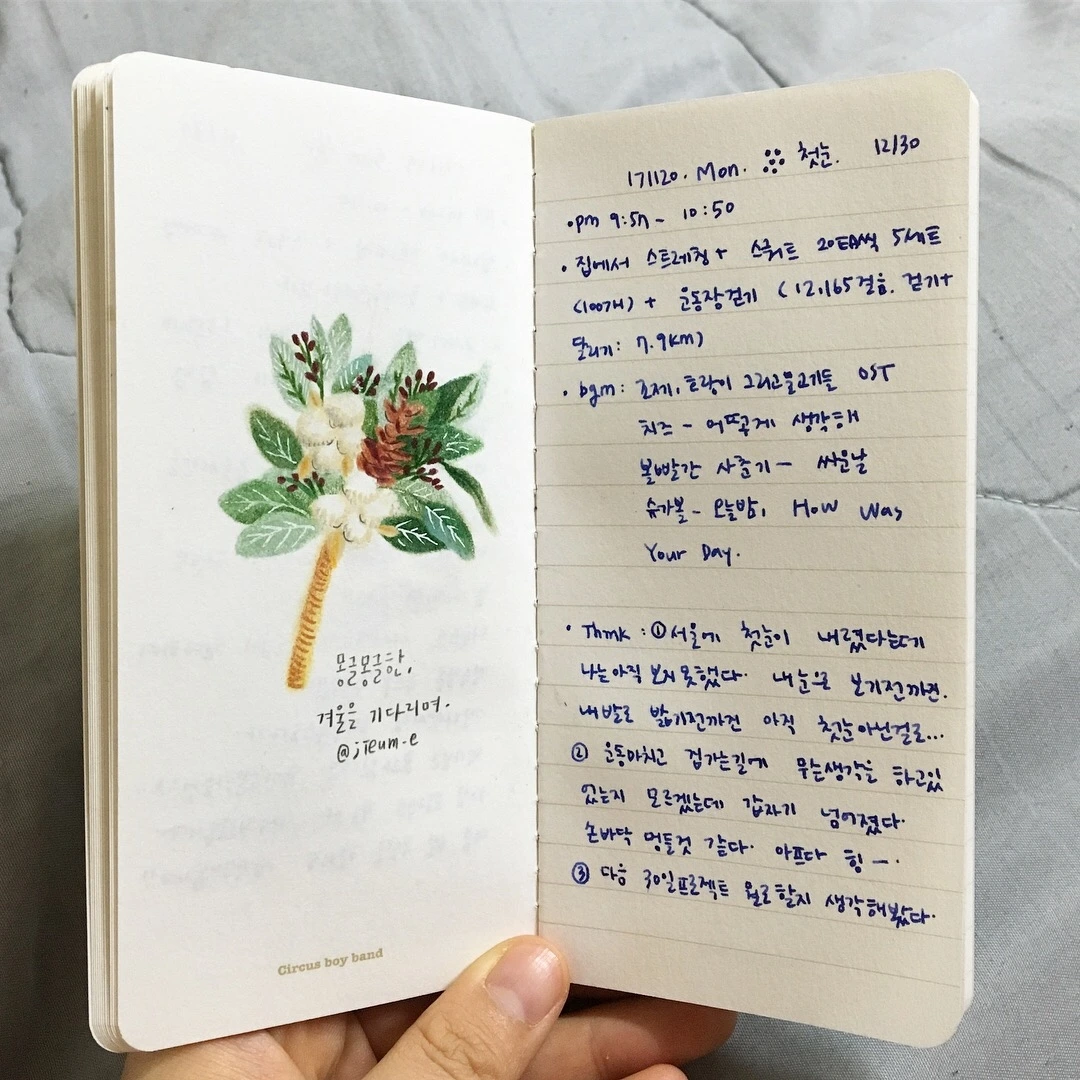 몽글몽글한,
겨울을 기다리며.
@jieum-e
Circus boy band
171120. Mon. 첫눈. 12/30
• pm 9:57 - 10:50
• 집에서 스트레칭 + 스쿼트 20EA씩 5세트
(100개) + 운동장걷기 (12,165걸음. 걷기+
달리기: 7.9km)
• bgm: 조제, 호랑이 그리고 물고기들 OST
치즈 - 어떻게 생각해
볼빨간 사춘기 - 싸운날
슈가볼 - 오늘밤, How Was
Your Day.
• Think : ① 서울에 첫눈이 내렸다는데
나는 아직 보지 못했다. 내 눈으로 보기전까진.
내 발로 밟기전까진 아직 첫눈 아닌걸로...
② 운동마치고 집가는길에 무슨생각을 하고있
었는지 모르겠는데 갑자기 넘어졌다.
손바닥 멍들것 같다. 아프다 힝 -.
③ 다음 30일프로젝트 뭘로할지 생각해봤다.